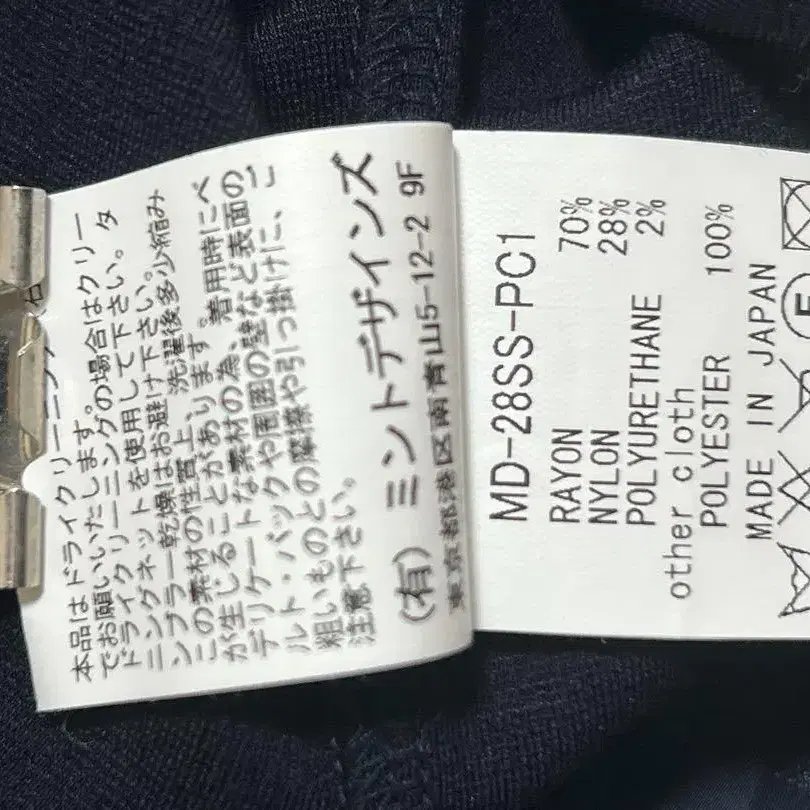 本品はドライクリーニング
でお願いいたします。の場合はクリー
ドライクリーニングを使用して下さい。タ
ニングネットを使用して下さい。
ンブラー乾燥はお避け下さい。
この素材の性質上、洗濯後多少縮み
が生じることがあります。着用時にベ
デリケートな素材の為、
ルト・バックや周囲の壁など表面の
粗いものとの摩擦や引っ掛けに、ご
注意下さい。
(有) ミントデザインズ
東京都港区南青山5-12-2 9F
MD-28SS-PC1
RAYON 70%
NYLON 28%
POLYURETHANE 2%
other cloth
POLYESTER 100%
MADE IN JAPAN